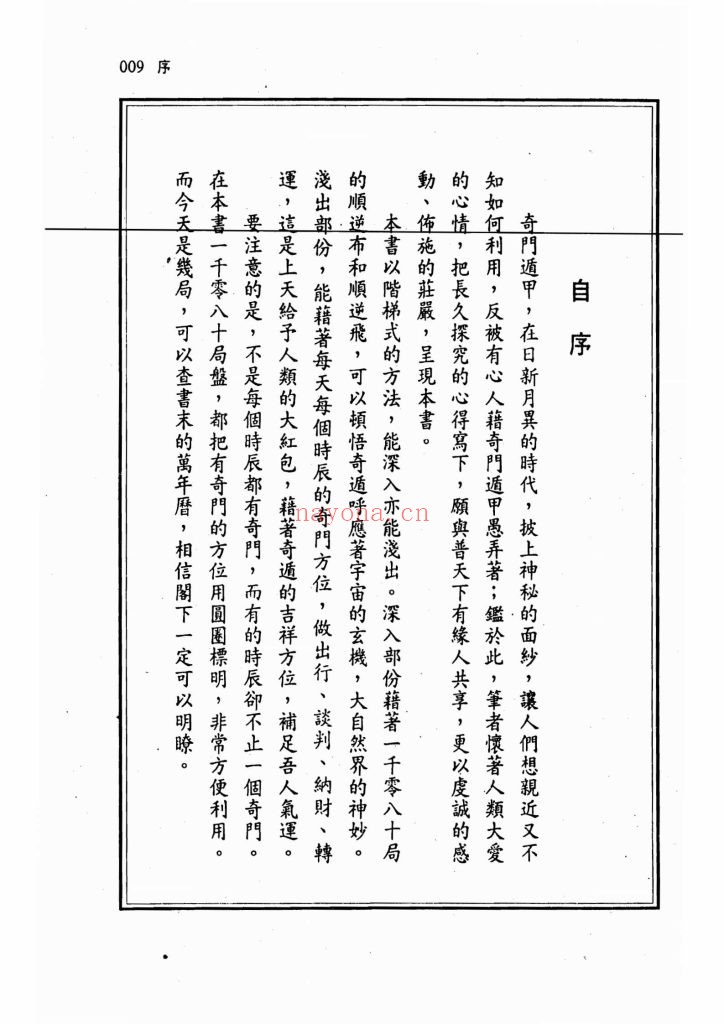 009 序
自序
奇門遁甲，在日新月異的時代，披上神秘的面紗，讓人們想親近又不
知如何利用，反被有心人藉奇門遁甲愚弄著；鑑於此，筆者懷著人類大愛
的心情，把長久探究的心得寫下，願與普天下有緣人共享，更以虔誠的感
動、佈施的莊嚴，呈現本書。
本書以階梯式的方法，能深入亦能淺出。深入部份藉著一千零八十局
的順逆布和順逆飛，可以頓悟奇遁呼應著宇宙的玄機，大自然界的神妙。
淺出部份，能藉著每天每個時辰的奇門方位，做出行、談判、納財、轉
運，這是上天給予人類的大紅包，藉著奇遁的吉祥方位，補足吾人氣運。
要注意的是，不是每個時辰都有奇門，而有的時辰卻不止一個奇門。
在本書一千零八十局盤，都把有奇門的方位用圓圈標明，非常方便利用。
而今天是幾局，可以查書末的萬年曆，相信閣下一定可以明瞭。
nayona.cn